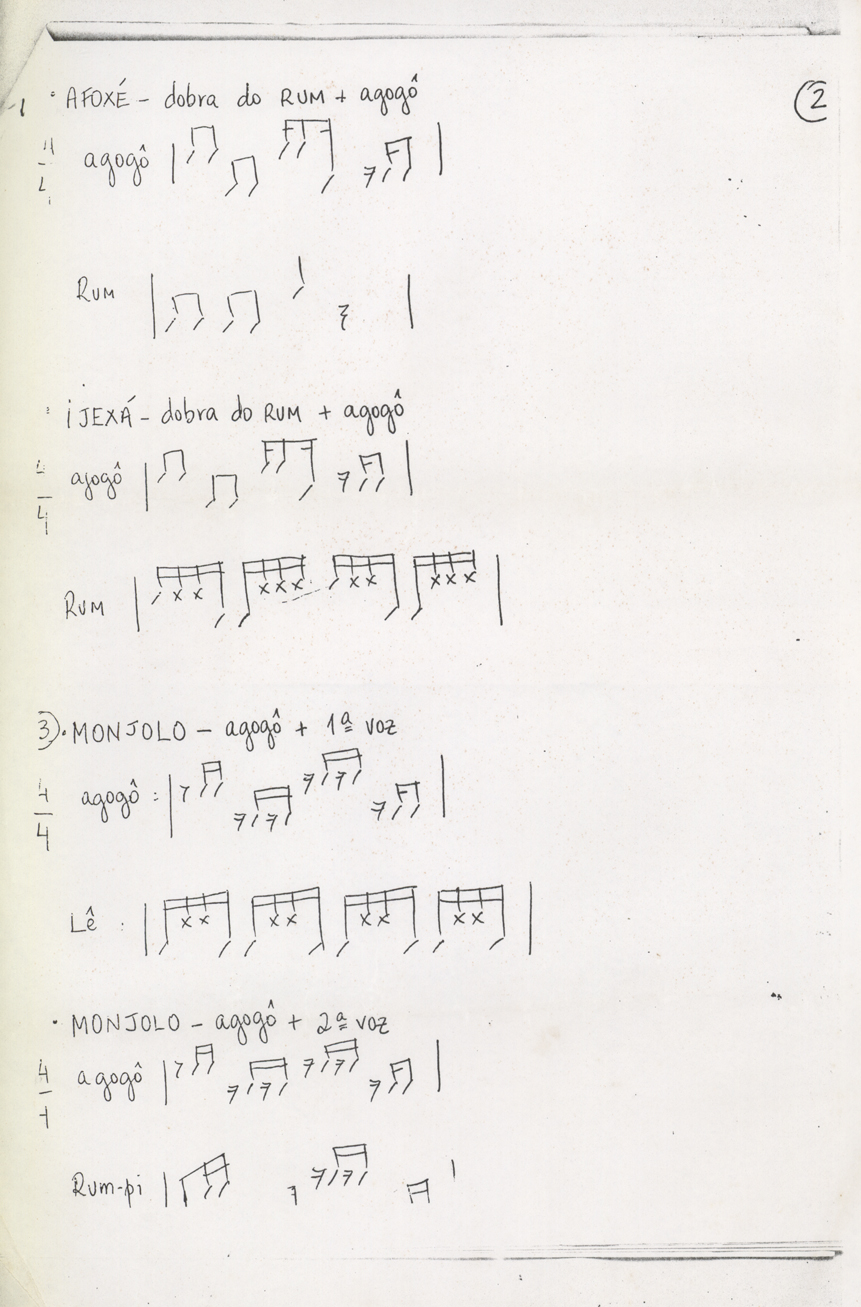 ②
1 · AFOXÉ - dobra do RUM + agogô
4/4 agogô
RUM
· IJEXÁ - dobra do RUM + agogô
4/4 agogô
RUM
3). MONJOLO - agogô + 1ª voz
4/4 agogô :
Lê :
· MONJOLO - agogô + 2ª voz
4/4 agogô
Rum-pi